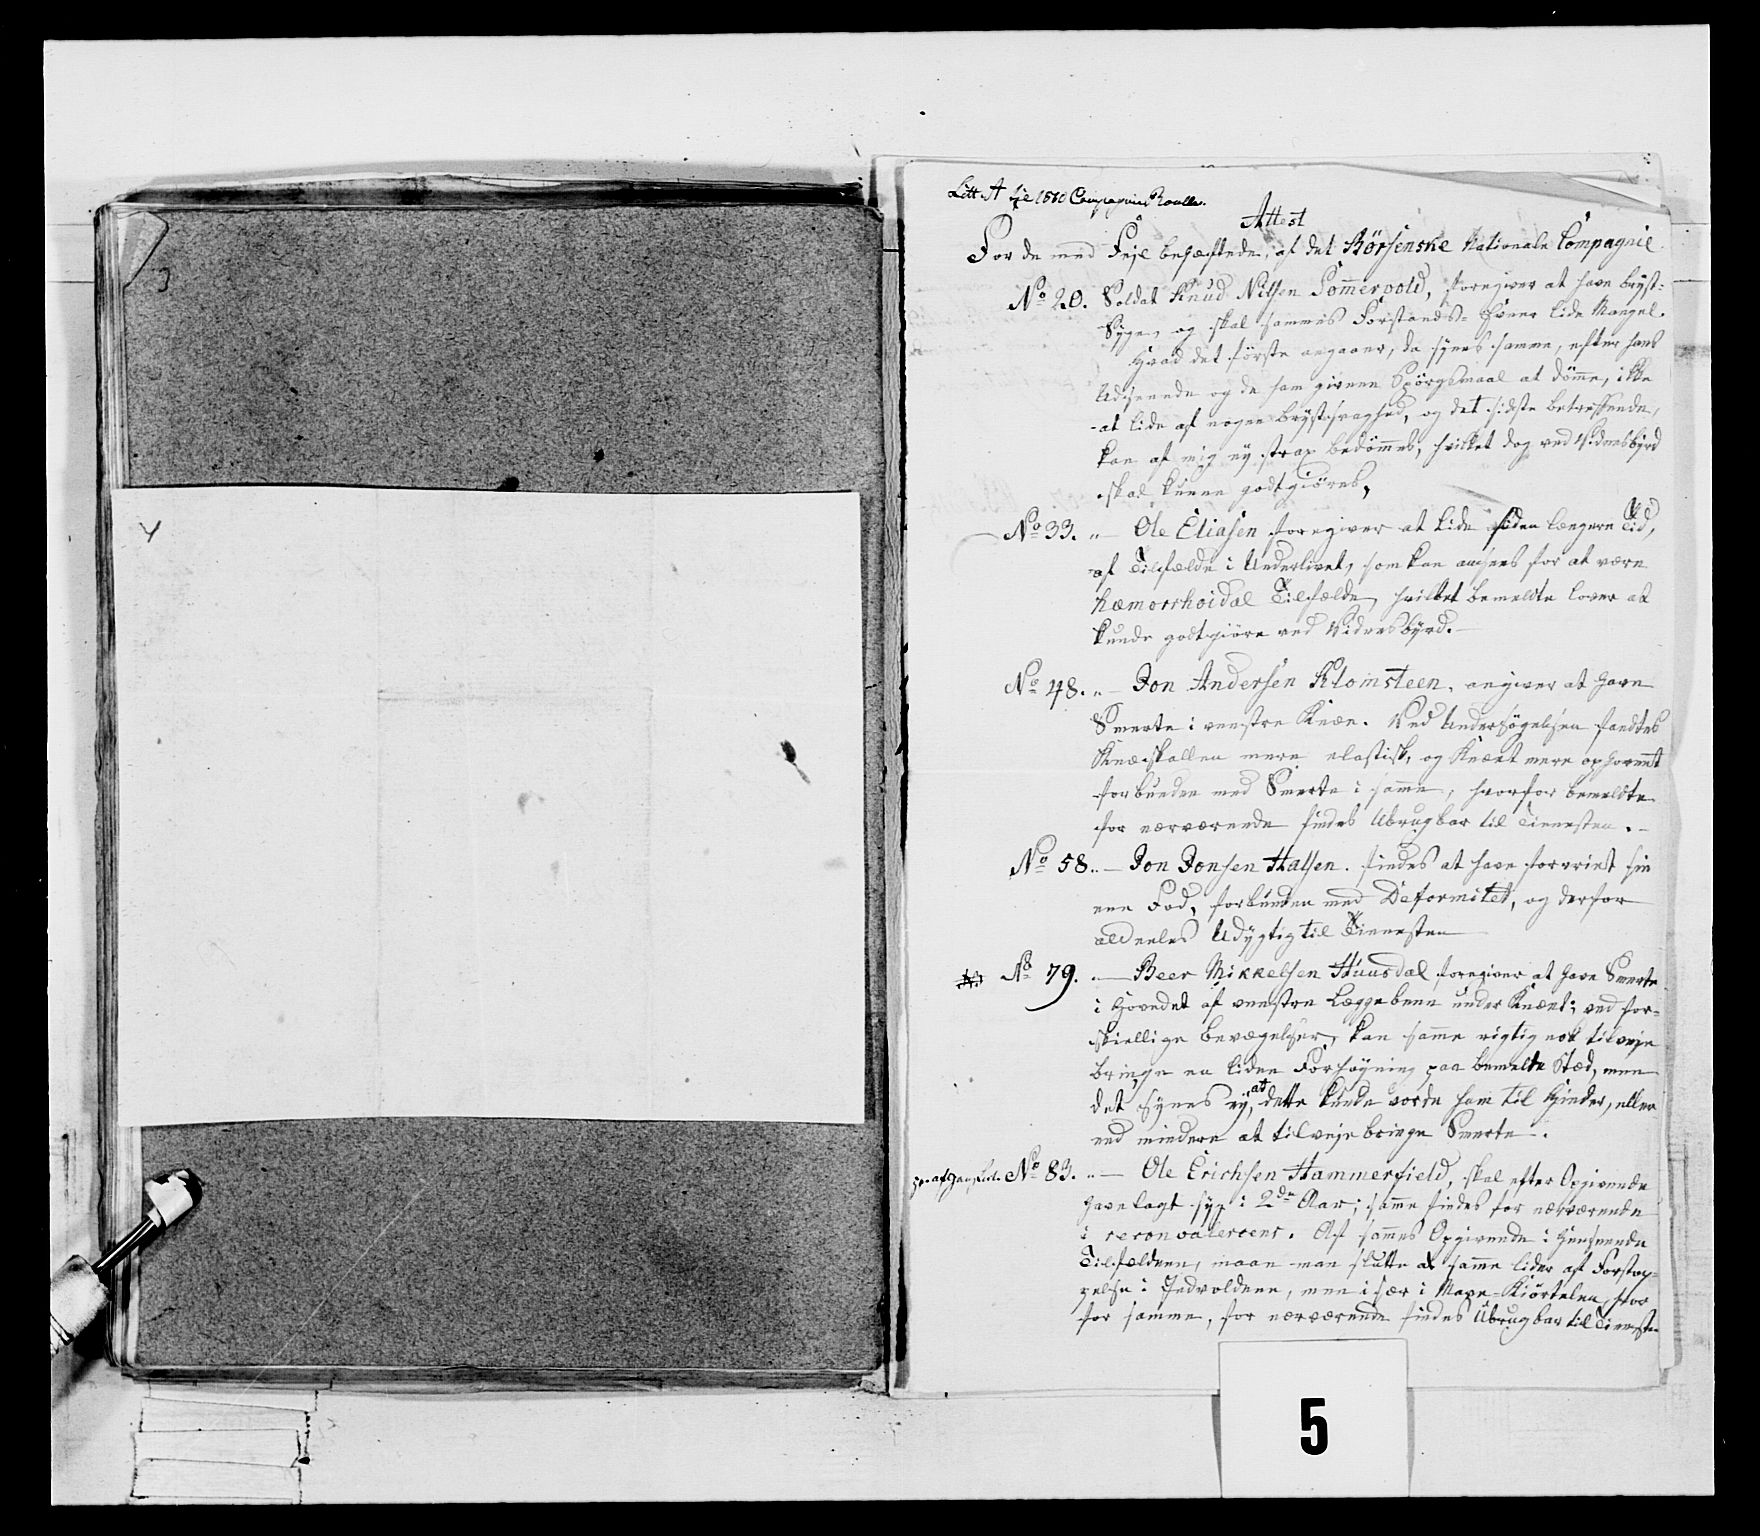 3
4
Litt. A til Compagnies Roulle.
Attest
For de med Feje behæftede, af det Börsenske Nationale Compagnie
No 20. Soldat Knud Nilsen Sommervold, foregiver at have bryst-
Syge, og skal sammes Forstands-Evner lide Mangel.
Hvad det förste angaaer, da synes samme, efter hans
Udseende og de ham givne Spörgsmaal at dömme, ikke
at lide af nogen brystsvaghed, og det sidste betreffende,
kan af mig ey strax bedömmes, hvilket dog ved Vidnesbyrd
skal kunne godtgiöres,
No 33. " — Ole Eliasen foregiver at lide siden længere Tid,
af Tilfælde i Underlivet, som kan ansees for at være
hæmorrhoidal Tilfælde, hvilket bemeldte lover at
kunde godtgiöre ved Vidnesbyrd. —
No 48. " — Jon Andersen Klomsteen, angiver at have
Smerte i venstre Knæe. Ved Undersögelsen fandtes
Knæskallen mere elastisk, og Knæet mere ophovnet
forbunden med Smerte i samme, hvorfor bemeldte
for nærværende findes Ubrugbar til Tienesten. —
No 58. " — Jon Jonsen Halsen. findes at have forvriet sin
ene Fod, forbunden med Deformitet, og derfor
aldeeles Udygtig til Tienesten
No 79. " — Peer Mikkelsen Huusdal, foregiver at have Smerte
i Hovedet af venstre Læggebeen under Knæet; ved for-
skiellige bevægelser, kan samme rigtig nok tilveje
bringe en liden Forhöyning paa bemelte Stæd, men
det synes ey, at dette kunde vorde ham til Hinder, eller
end mindre at tilvejebringe Smerte.
No 83. " — Ole Erichsen Hammerfield, skal efter Opgivende
have lagt syg i 2de Aar; samme findes for nærværende
i reconvalescens. Af sammes Opgivende i Henseende
Tilfældene, maae man slutte at samme lider af Forstop-
pelse i Indvoldene, men i sær i Mave-Kiörtelen, hvor
for samme, for nærværende findes Ubrugbar til Tieneste
5